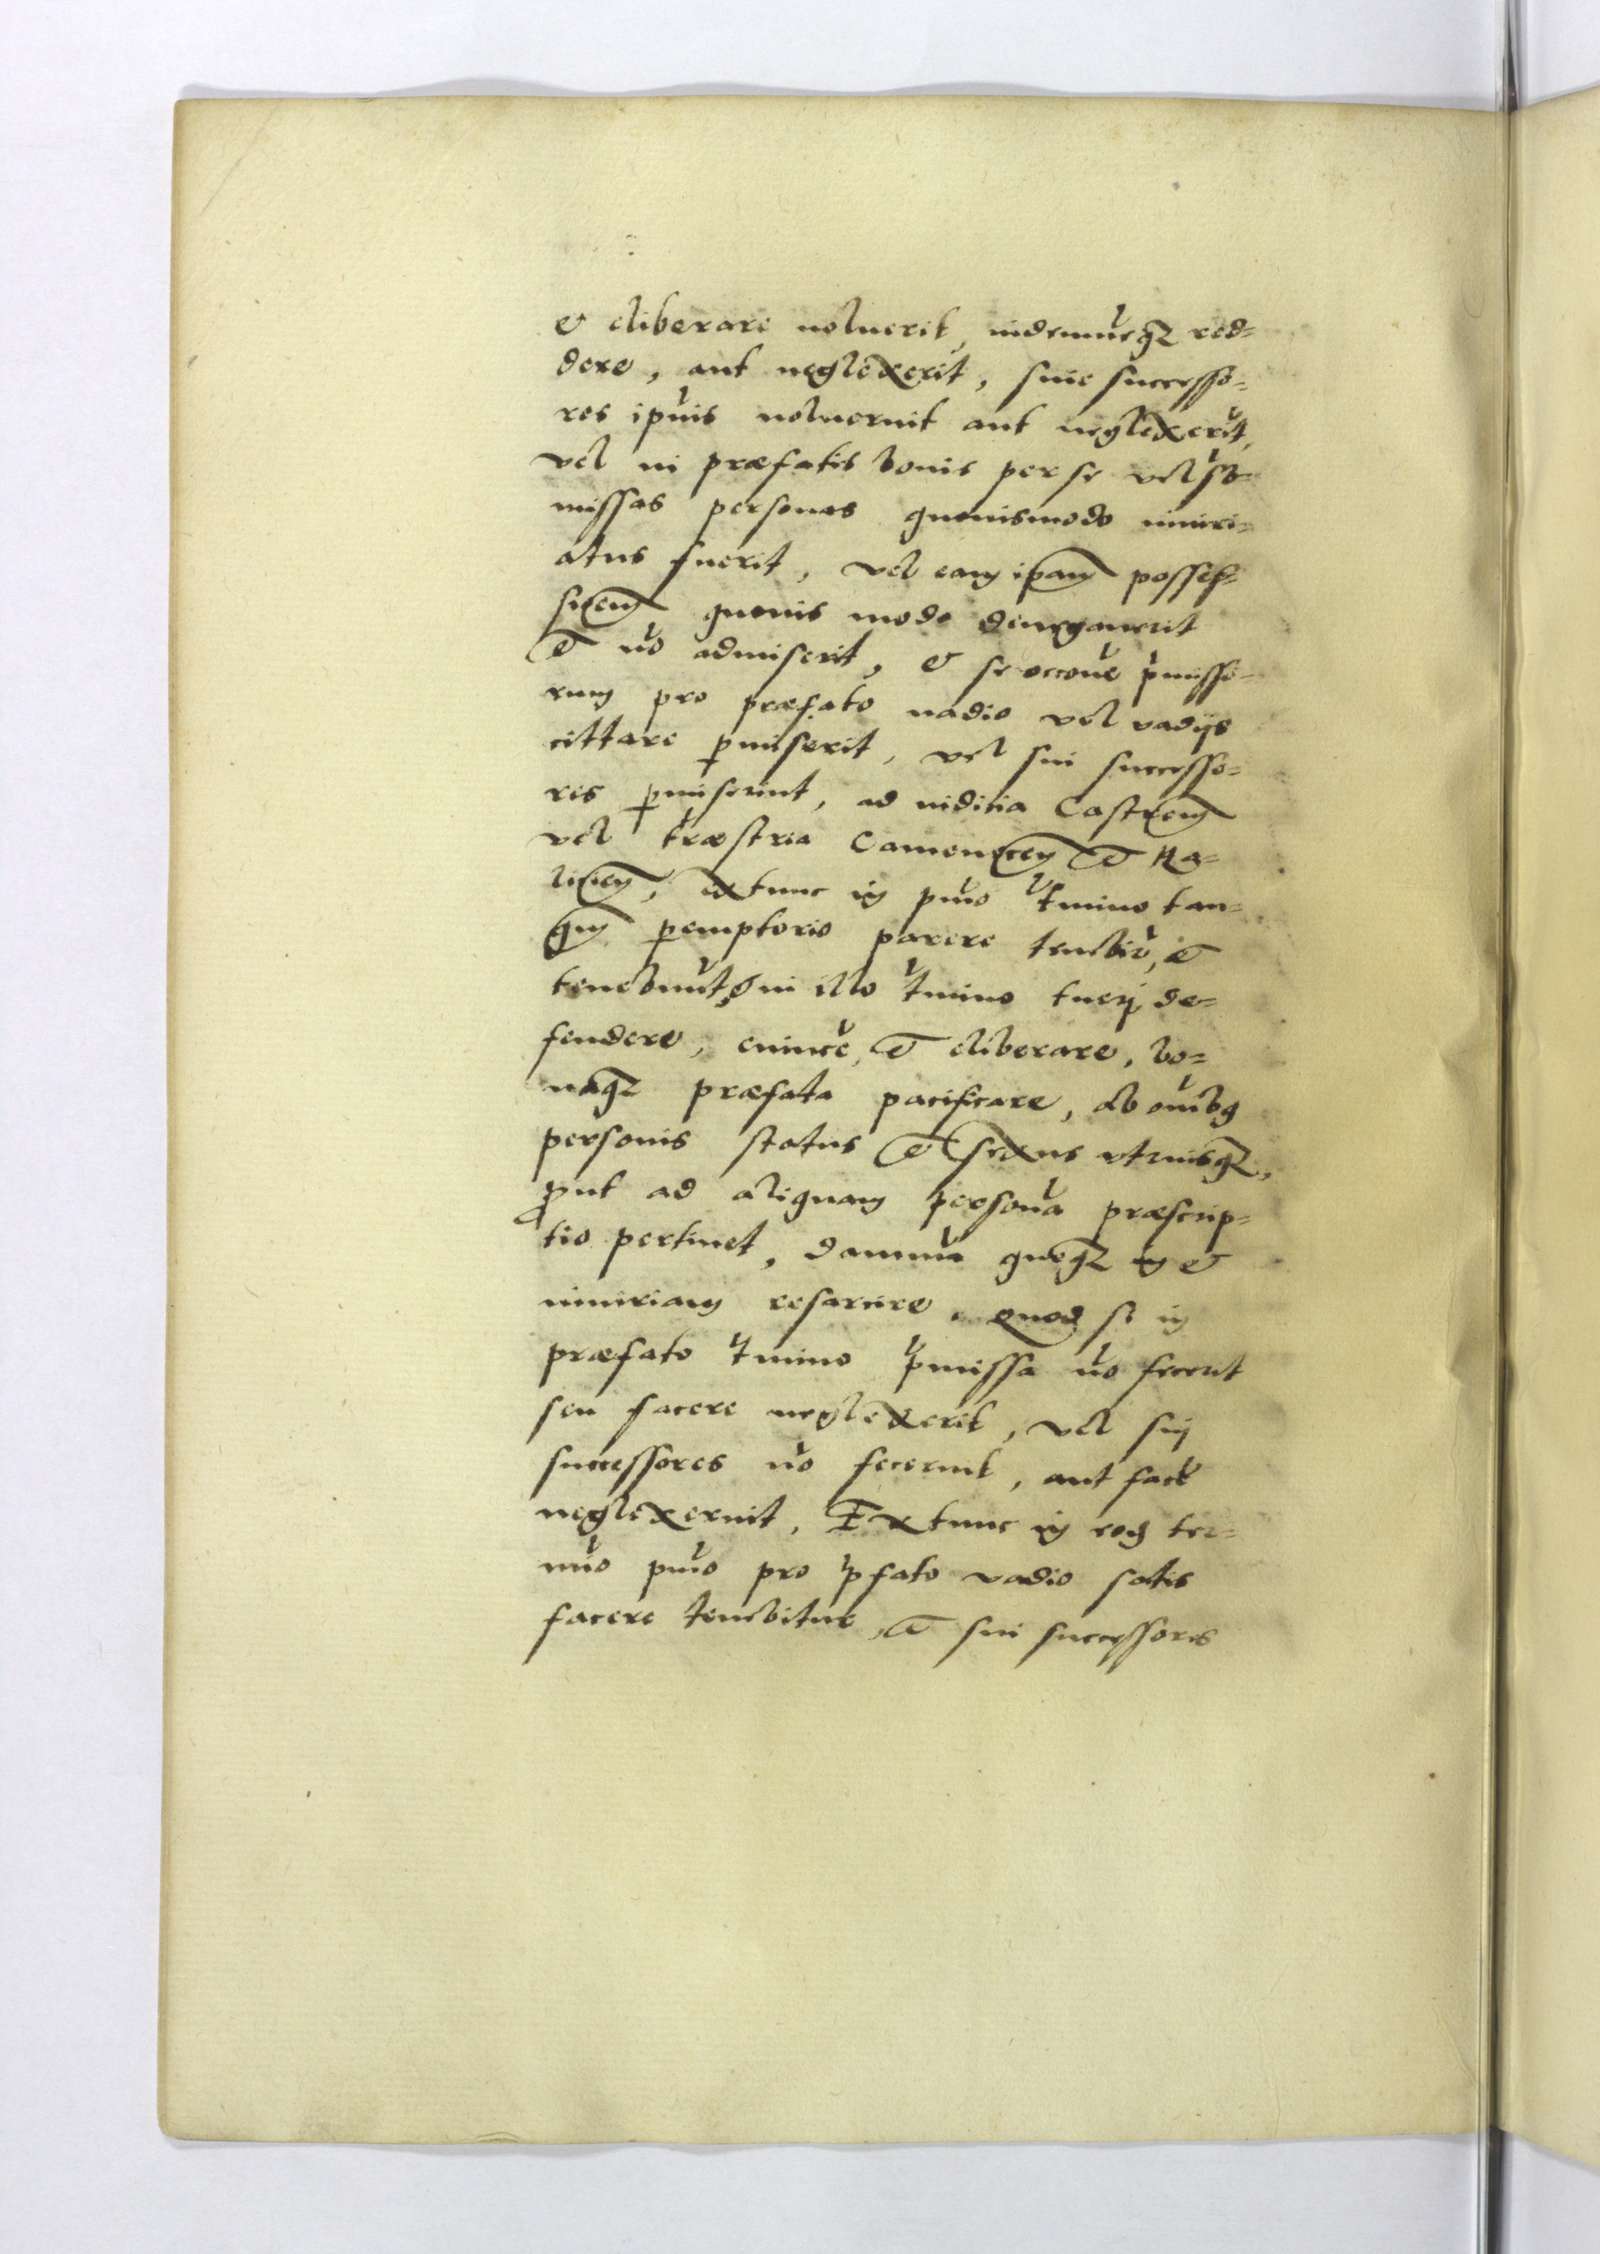 & eliberare noluerit, indemnẽqꝫ red=
dere, aut neglexerit, siue successo=
res ipiũs noluerint aut neglexerĩt,
vel in præfatis bonis per se vel sũb=
missas personas quouismodo iniuri=
atus fuerit, vel eam ipam posses=
sionem quouis modo denegauerit
et nõ admiserit, & se occõne p̃misso=
rum pro præfato vadio vel vadijs
cittare ꝑmiserit, vel sui successo=
res ꝑmiserint, ad iuditia Castren
vel træstria Camenecen et Ha=
licien, extunc in p̃mo t̃mino tan=
qm ꝑemptorio parere tenebit̃, et
tenebunt̃, & in illo t̃mino tueri, de=
fendere, euincẽ, et eliberare, bo=
naqꝫ præfata pacificare, ab om̃ibꝫ
personis status et sexus utriusqꝫ,
ꝓut ad aliquam personã præscrip=
tio pertinet, damnũ quoqꝫ &
iniuriam resarcire. Quod si in
præfato t̃mino p̃missa nõ fecerit
seu facere neglexerit, vel sui
successores nõ fecerint, aut facẽ
neglexerint, Extunc in eod ter=
mĩo p̃mo pro p̃fato vadio satis
facere tenebitur, et sui successores